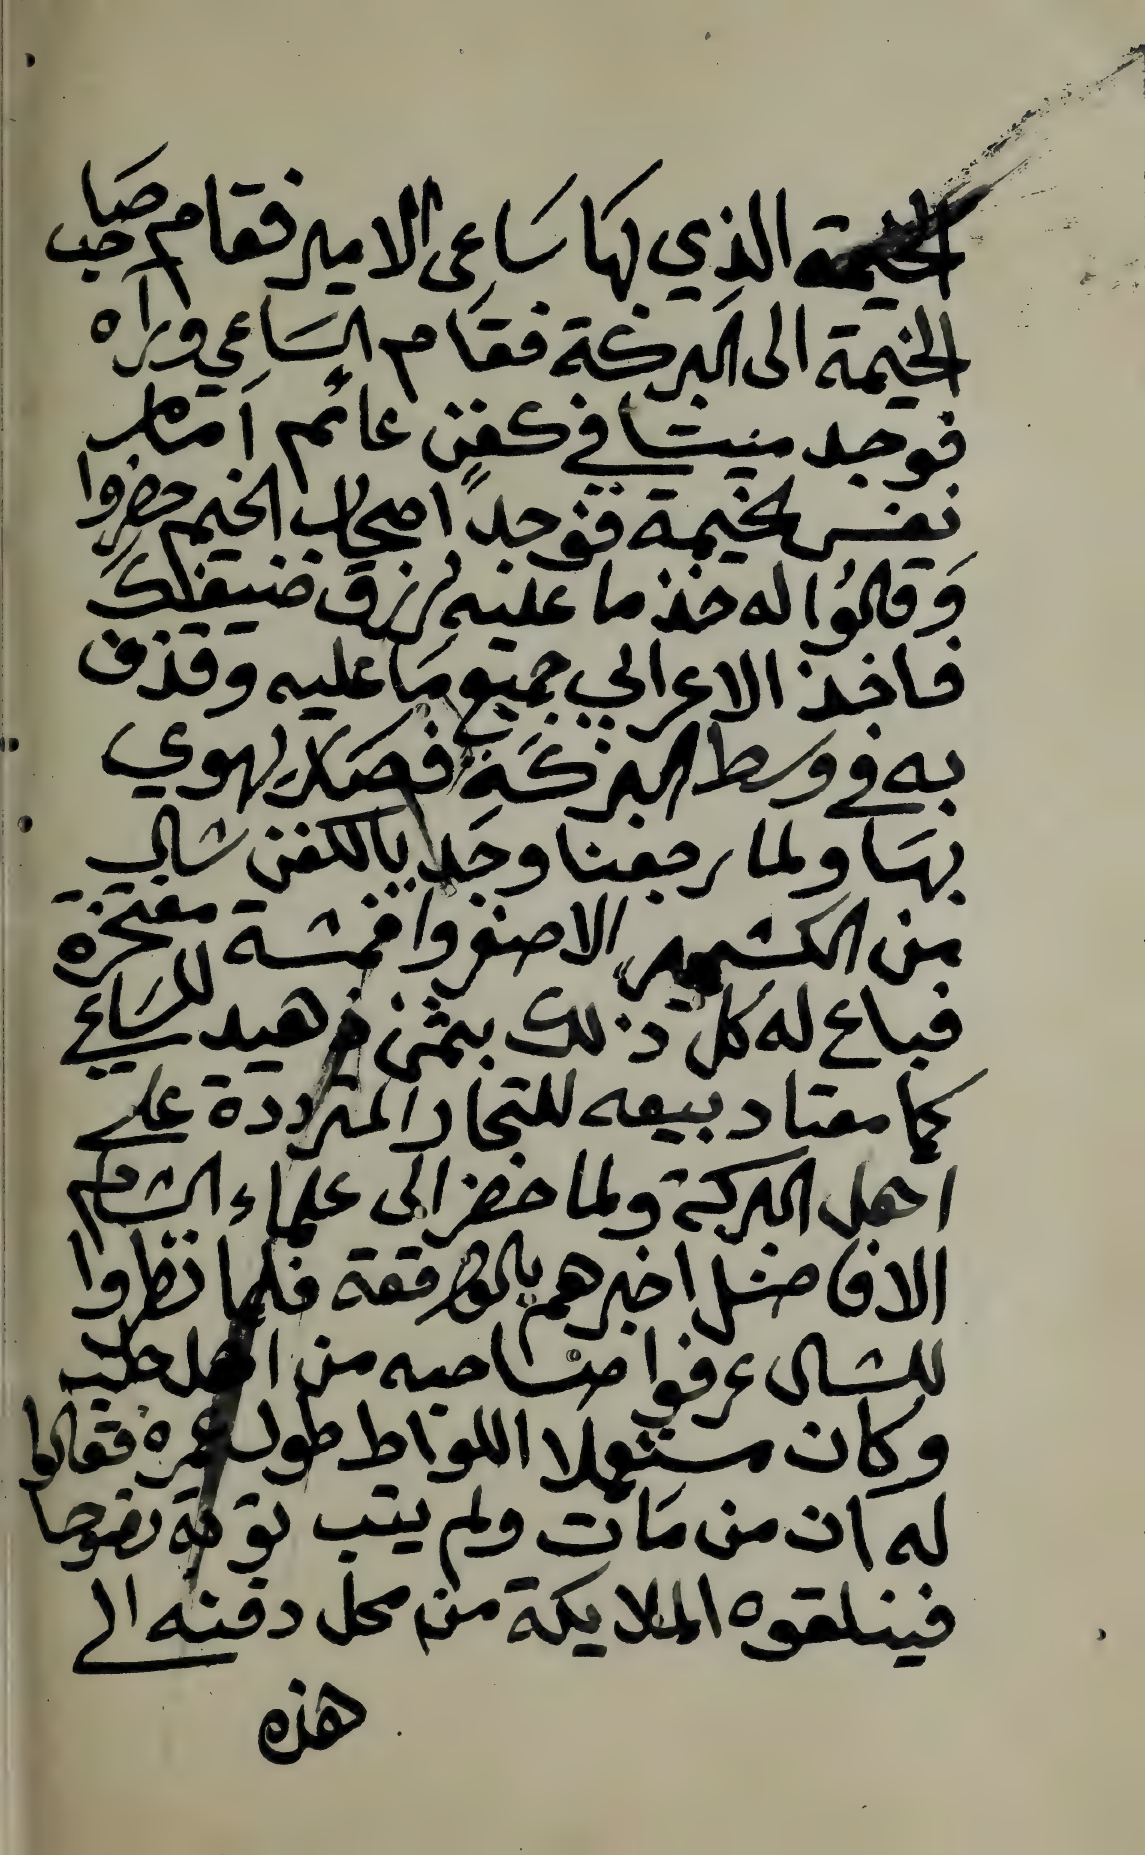 الخيمة الذي بها ساعي الامير فقام صاحب
الخيمة الى البركة فقام الساعي وراه
فوجد ميتا في كفن عائم امام
نفس الخيمة فوجد اصحاب الخيم حضروا
وقالوا له خذ ما عليه لرزق ضيفك
فاخذ الاعرابي جميع ما عليه وقذف
به في وسط البركة فصار يهوي
بها ولما رجعنا وجد بالكفن شال
من الكشمير الاصفر واقمشة مفتخرة
فباع له كل ذلك بثمن زهيد للساعي
كما معتاد بيعه للتجار المترددة على
اهل البركة ولما حضر الى علماء الشام
الان مثل اخبرهم بالواقعة فلما نظروا
للشال عرفوا صاحبه من اهل حلب
وكان مستعملا اللواط طول عمره فقالوا
له ان من مات ولم يتب توبة نصوحا
فينلقوه الملايكة من محل دفنه الى
هذه